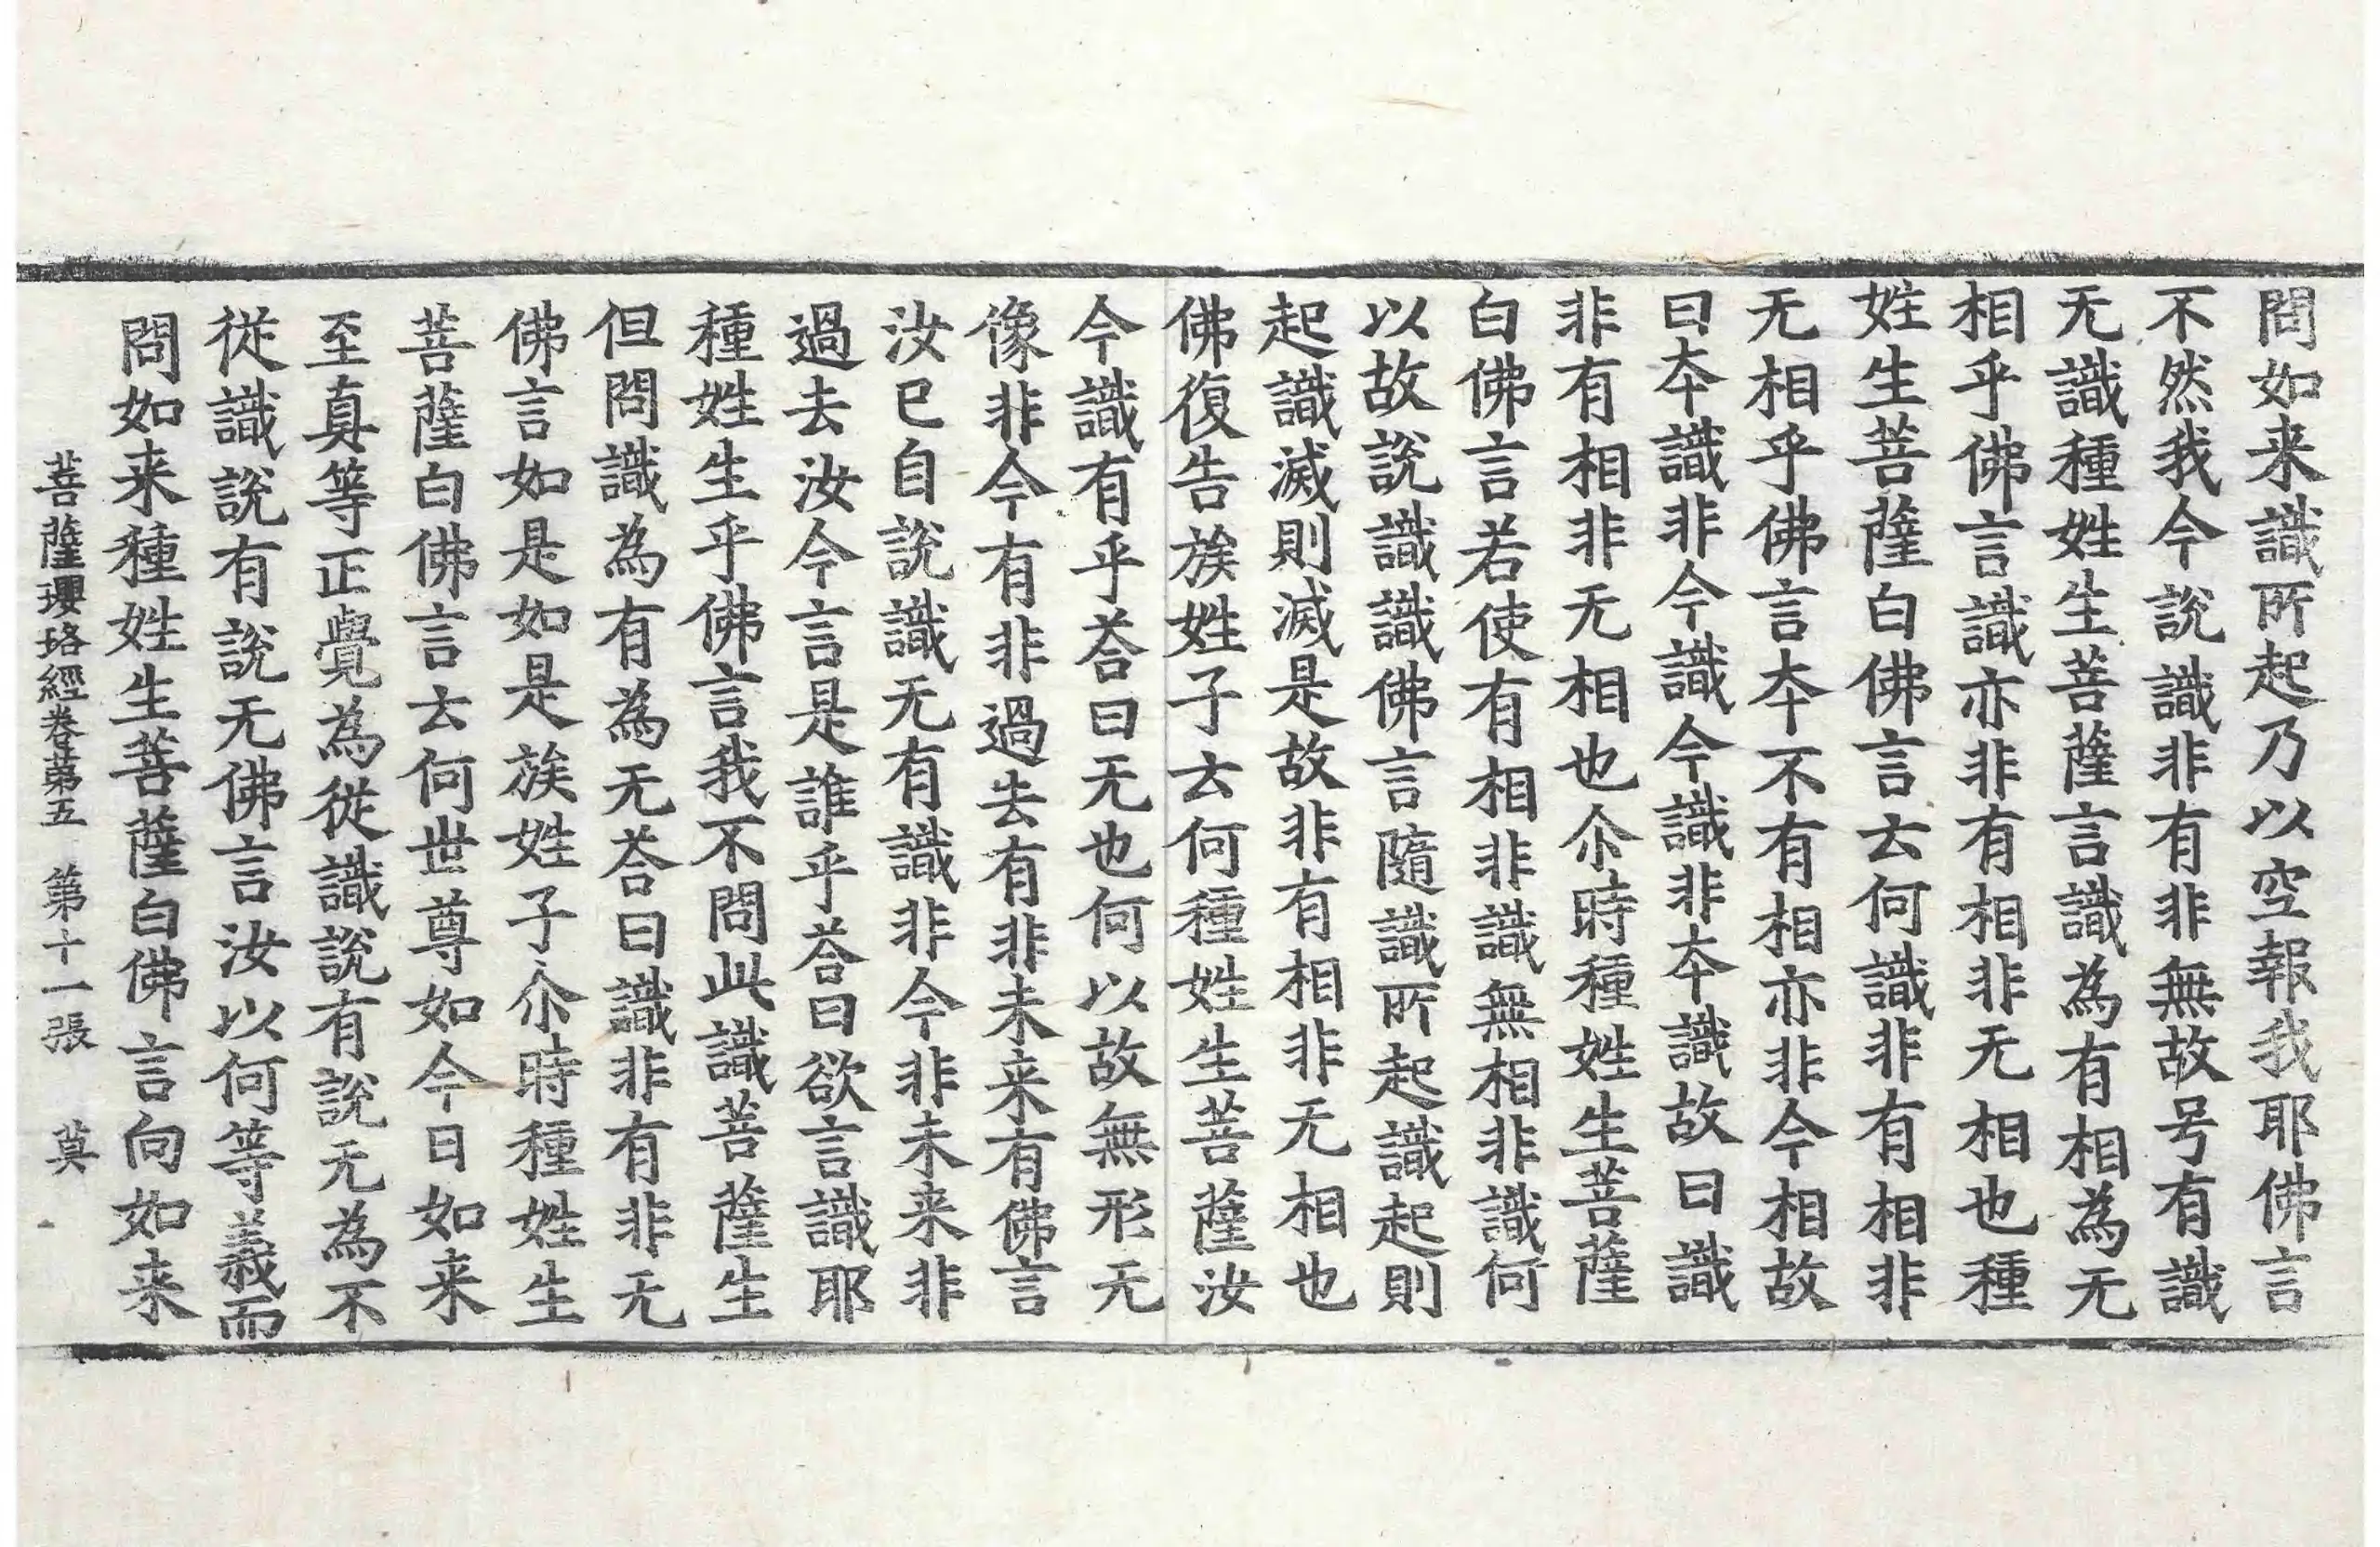 問如来識所起乃以空報我耶佛言
不然我今說識非有非無故号有識
无識種姓生菩薩言識為有相為无
相乎佛言識亦非有相非无相也種
姓生菩薩白佛言去何識非有相非
无相乎佛言夲不有相亦非今相故
曰夲識非今識今識非夲識故曰識
非有相非无相也尒時種姓生菩薩
白佛言若使有相非識無相非識何
以故說識識佛言隨識所起識起則
起識滅則滅是故非有相非无相也
佛復告族姓子云何種姓生菩薩汝
今識有乎荅曰无也何以故無形无
像非今有非過去有非未来有佛言
汝巳自說識无有識非今非未来非
過去汝今言是誰乎荅曰欲言識耶
種姓生乎佛言我不問此識菩薩生
但問識為有為无荅曰識非有非无
佛言如是如是族姓子尒時種姓生
菩薩白佛言去何世尊如今日如来
至真等正覺為從識說有說无為不
從識說有說无佛言汝以何等義而
問如来種姓生菩薩白佛言向如来
菩薩瓔珞經卷第五 第十一張 莫